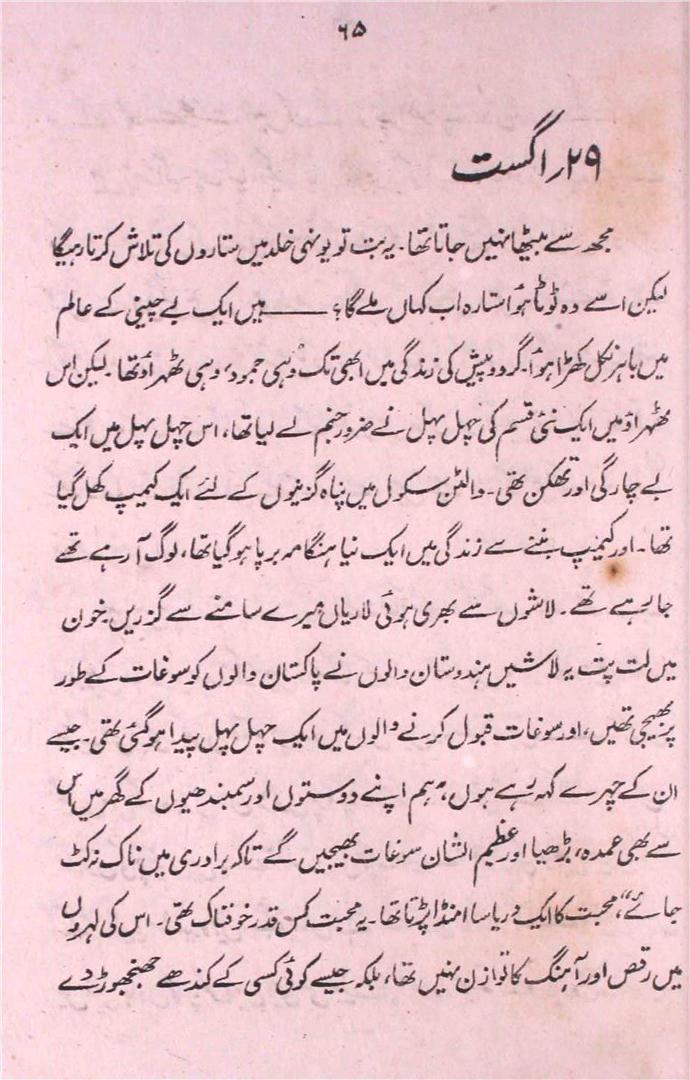 ۶۵
۲۹ر اگست
مجھ سے بیٹھا نہیں جاتا تھا۔ یہ بت تو یونہی خلد میں ستاروں کی تلاش کرتا رہیگا
لیکن اسے وہ ٹوٹا ہوُا ستارہ اب کہاں ملے گا؟ ——— میں ایک بے چینی کے عالم
میں باہر نکل کھڑا ہوُا۔ گردوپیش کی زندگی میں ابھی تک وُہی جمود، وہی ٹھہراؤ تھا۔ لیکن اس
ٹھہراؤ میں ایک نئی قسم کی چہل پہل نے ضرور جنم لے لیا تھا، اس چہل پہل میں ایک
بے چارگی اور تھکن تھی۔ والٹن سکول میں پناہ گزینوں کے لئے ایک کیمپ کھل گیا
تھا۔ اور کیمپ بننے سے زندگی میں ایک نیا ہنگامہ برپا ہو گیا تھا، لوگ آ رہے تھے
جا رہے تھے۔ لاشوں سے بھری ہوئی لاریاں میرے سامنے سے گزریں۔ خون
میں لت پت یہ لاشیں ہندوستان والوں نے پاکستان والوں کو سوغات کے طور
پر بھیجی تھیں، اور سوغات قبول کرنے والوں میں ایک چہل پہل پیدا ہو گئی تھی۔ جیسے
ان کے چہرے کہہ رہے ہوں، ”ہم اپنے دوستوں اور سمبندھیوں کے گھر میں اس
سے بھی عمدہ، بڑھیا اور عظیم الشان سوغات بھیجیں گے تاکہ برادری میں ناک نہ کٹ
جائے“، محبت کا ایک دریا سا امنڈا پڑتا تھا۔ یہ محبت کس قدر خوفناک تھی۔ اس کی لہروں
میں رقص اور آہنگ کا توازن نہیں تھا، بلکہ جیسے کوئی کسی کے کندھے جھنجھوڑ دے